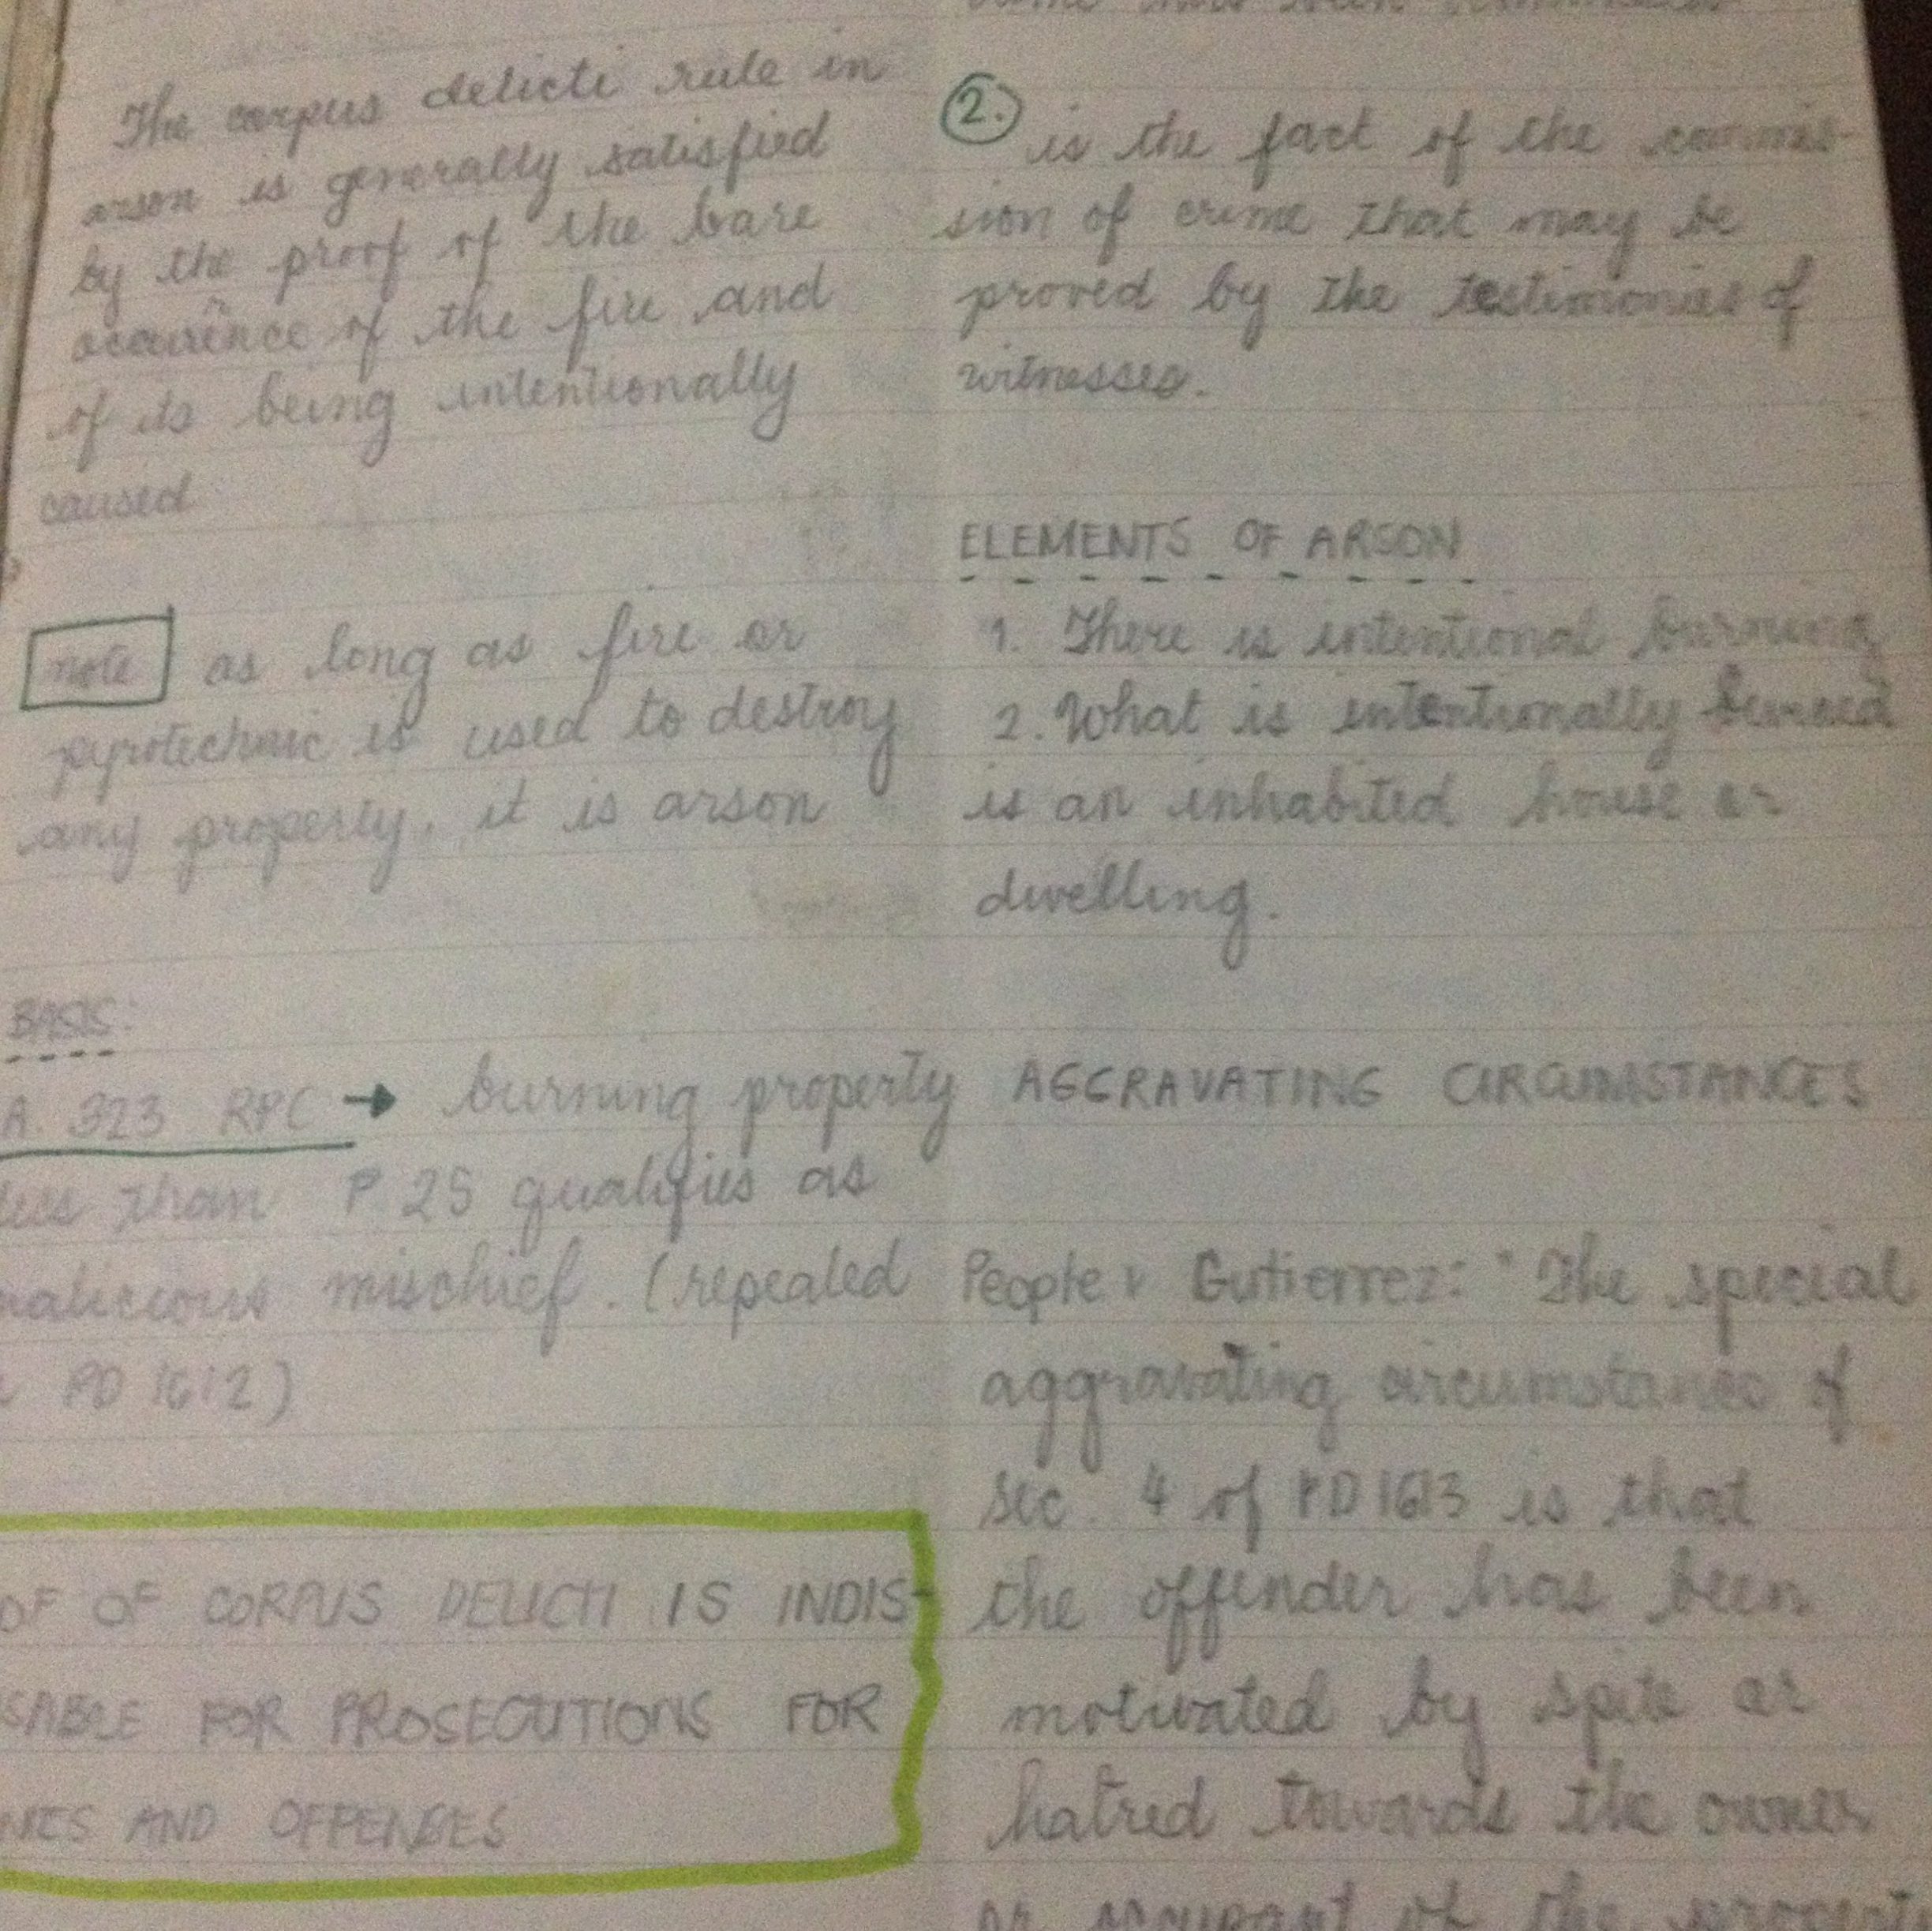 The corpus delicti rule in
arson is generally satisfied
by the proof of the bare
occurrence of the fire and
of its being intentionally
caused
note as long as fire or
pyrotechnic is used to destroy
any property, it is arson
BASIS:
A. 323 RPC → burning property
less than P. 25 qualifies as
malicious mischief. (repealed
PD 1612)
OF OF CORPUS DELICTI IS INDIS-
SABLE FOR PROSECUTIONS FOR
AND OFFENSES
2. is the fact of the commis-
sion of crime that may be
proved by the testimonies of
witnesses.
ELEMENTS OF ARSON
1. There is intentional burning
2. What is intentionally burned
is an inhabited house or
dwelling.
AGGRAVATING CIRCUMSTANCES
People v Gutierrez: "The special
aggravating circumstance of
sec. 4 of PD 1613 is that
the offender has been
motivated by spite or
hatred towards the owner
or occupant of the